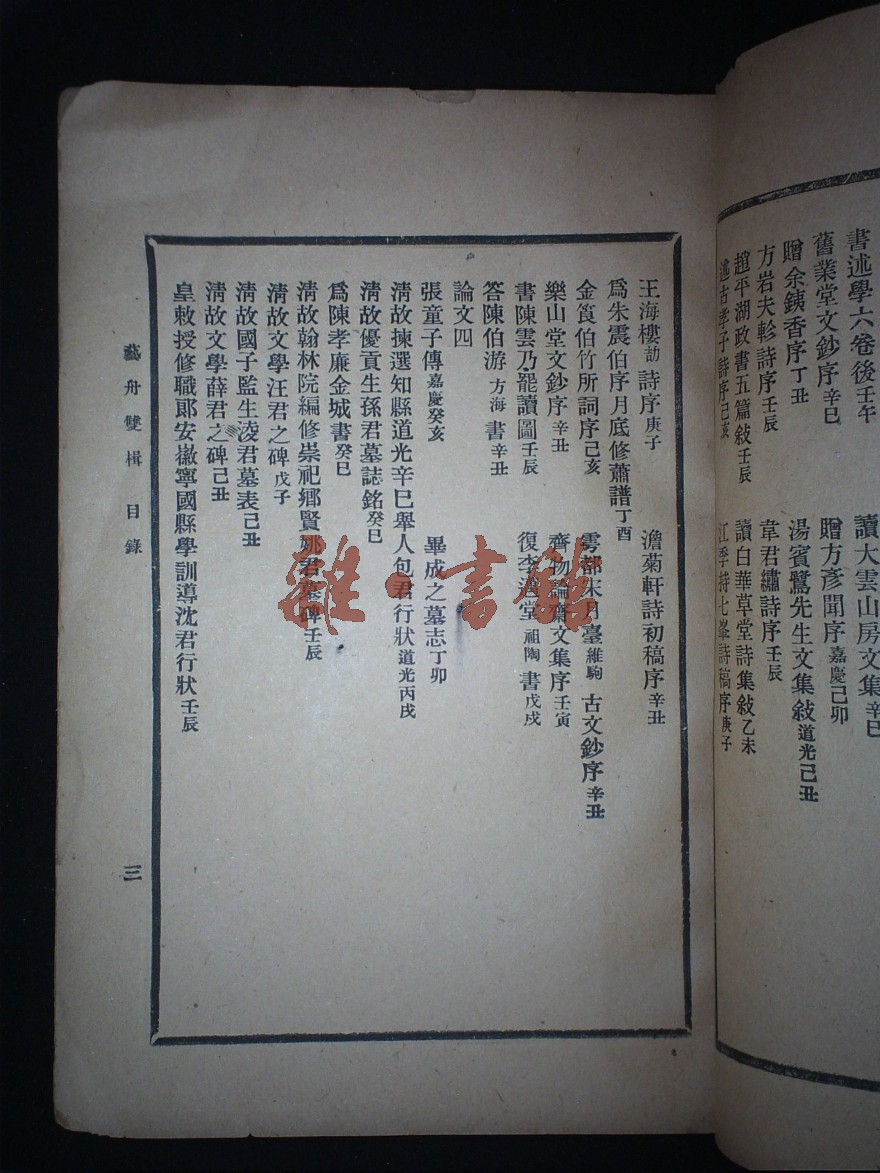 書述學六卷後壬午
讀大雲山房文集辛巳
舊業堂文鈔序辛巳
贈方彥聞序嘉慶己卯
贈余鋏香序丁丑
湯賓鷺先生文集敍道光己丑
方岩夫軫詩序壬辰
韋君繡詩序壬辰
趙平湖政書五篇敍壬辰
讀白華草堂詩集敍乙未
述古孝子詩序己亥
江季持七峯詩稿序庚子
王海樓劼詩序庚子
澹菊軒詩初稿序辛丑
爲朱震伯序月底修蕭譜丁酉
金筤伯竹所詞序己亥
雩都宋月臺維駒古文鈔序辛丑
樂山堂文鈔序辛丑
齊物論齋文集序壬寅
書陳雲乃罷讀圖壬辰
復李邁堂祖陶書戊戌
答陳伯游方海書辛丑
論文四
張童子傳嘉慶癸亥
畢成之墓志丁卯
清故揀選知縣道光辛巳舉人包君行狀道光丙戌
清故優貢生孫君墓誌銘癸巳
爲陳孝廉金城書癸巳
清故翰林院編修崇祀鄉賢姚君墓碑壬辰
清故文學汪君之碑戊子
清故國子監生淩君墓表己丑
清故文學薛君之碑己丑
皇敕授修職郞安徽寧國縣學訓導沈君行狀壬辰
藝舟雙楫 目錄
三
雜·書館